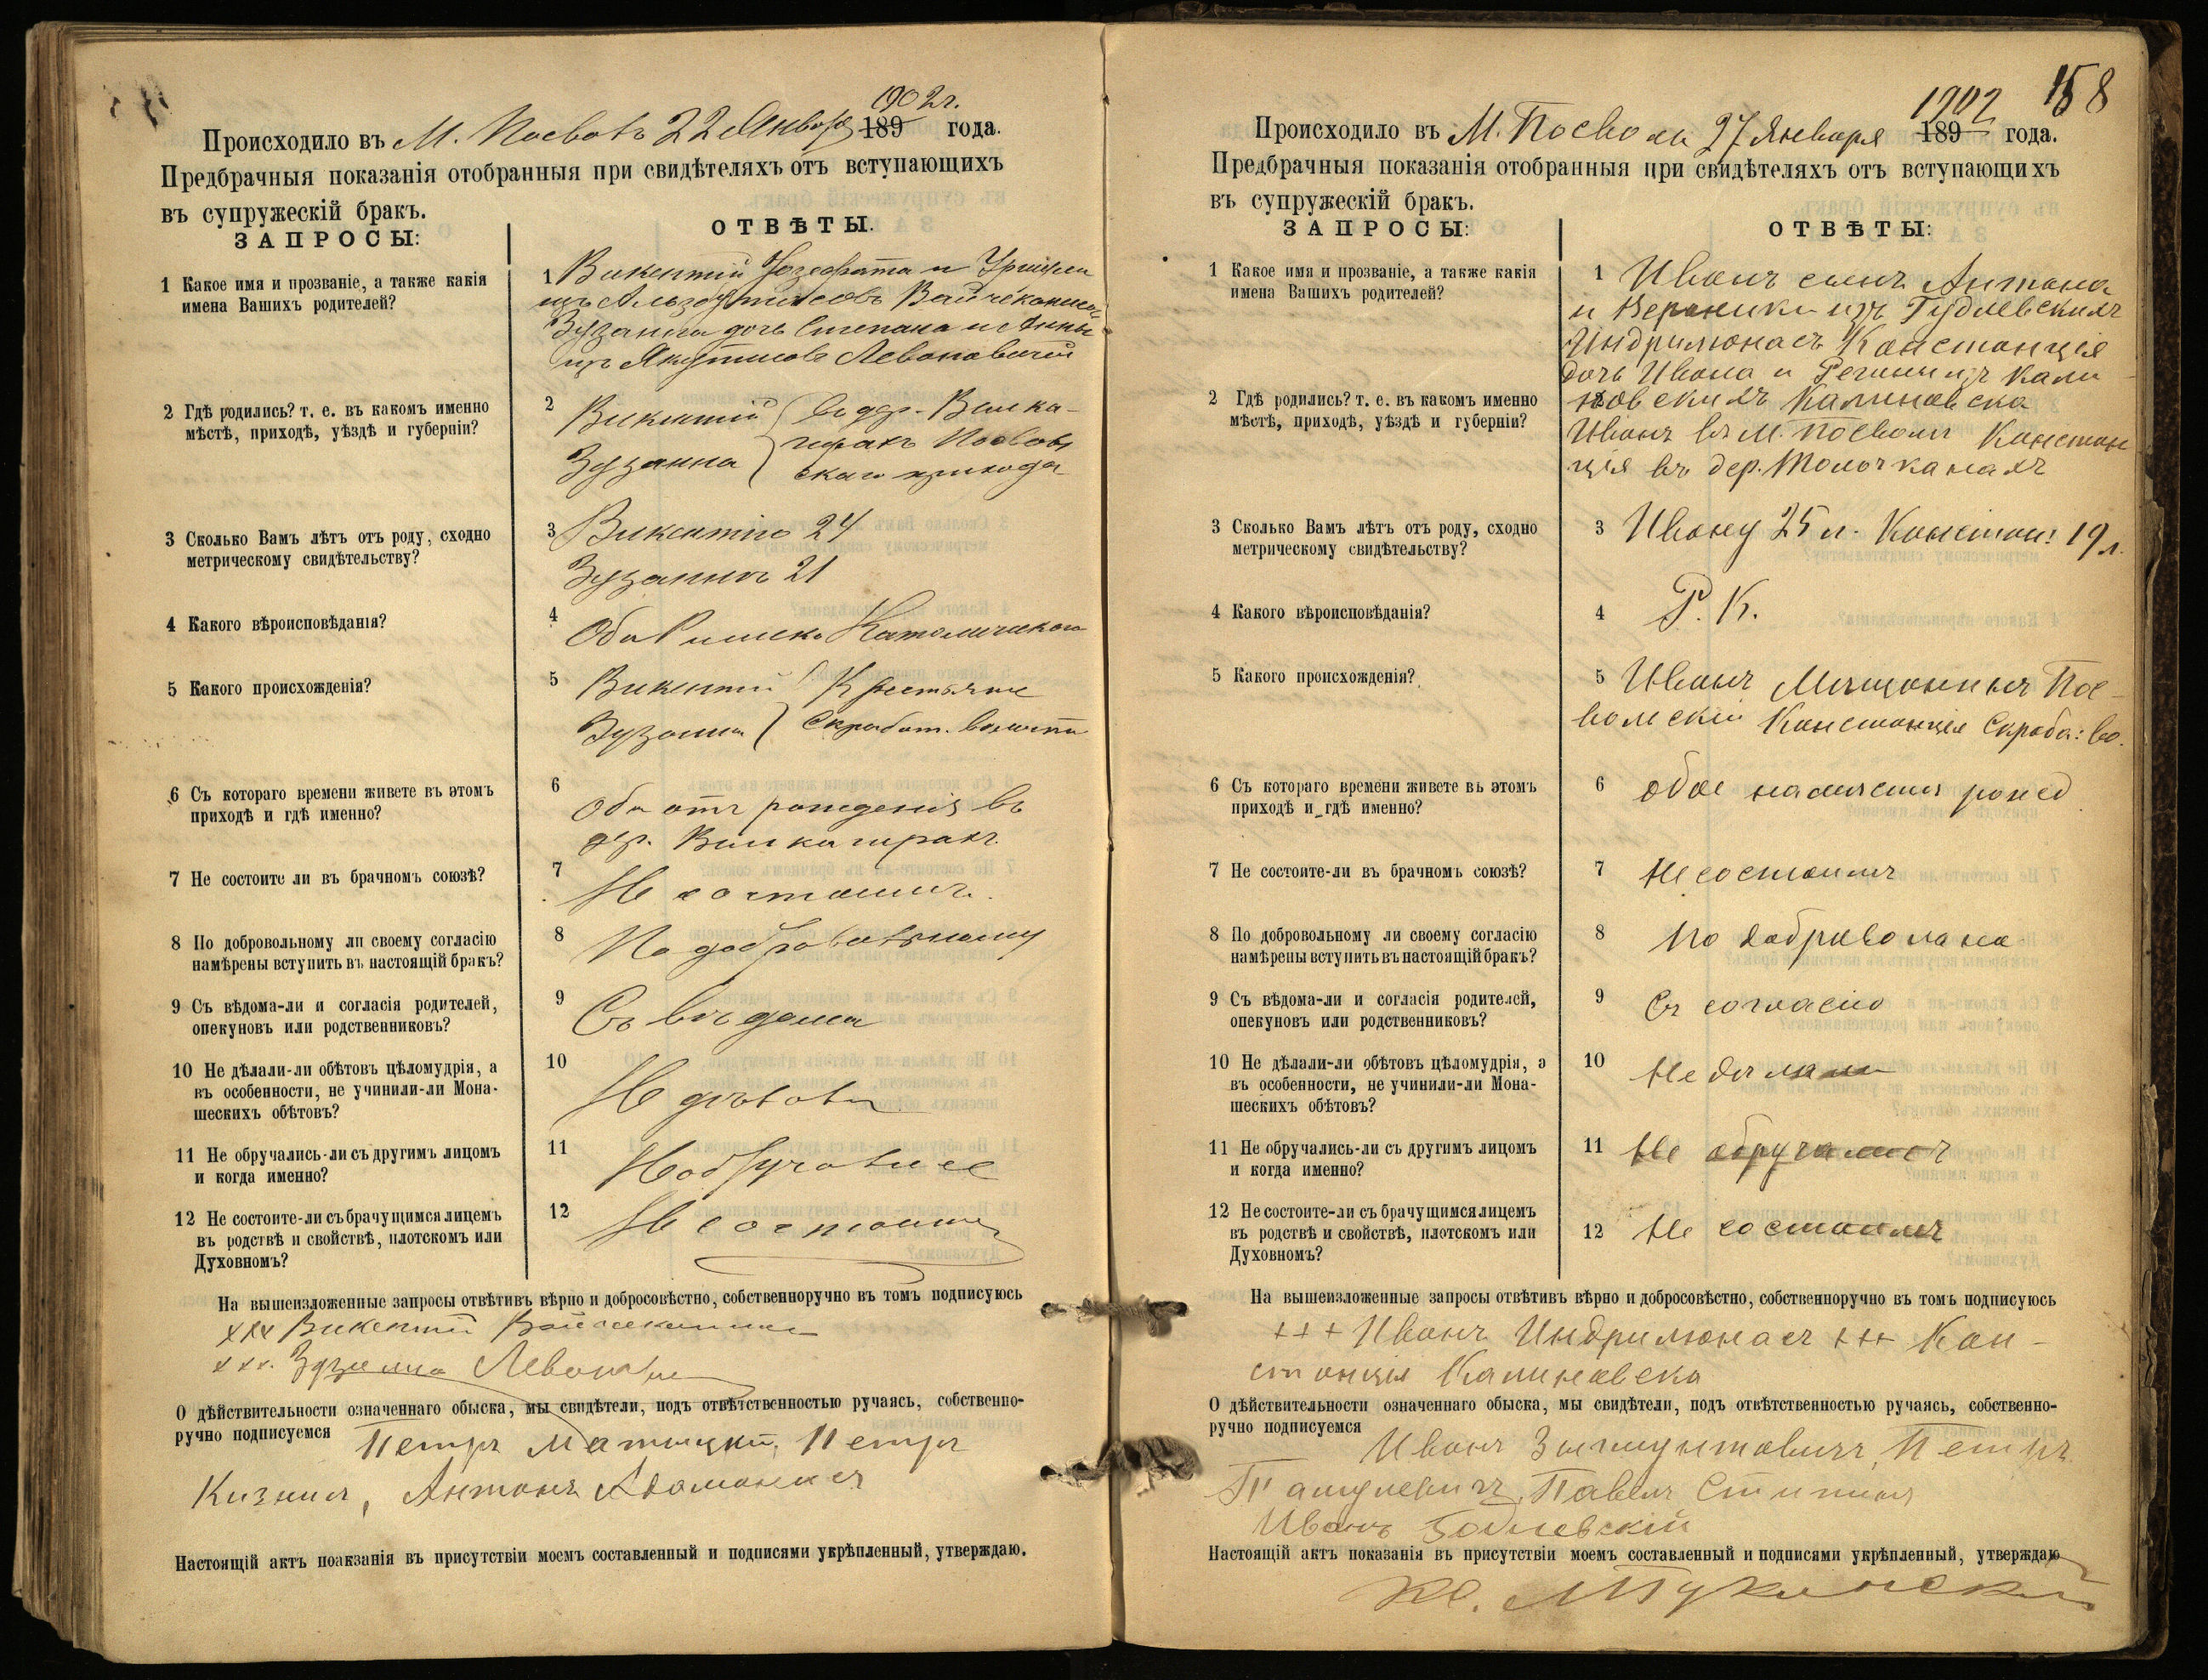 1902 г.
Происходило въ М. Посволь 22 Января 189 года.
Предбрачныя показанія отобранныя при свидѣтеляхъ отъ вступающихъ
въ супружескій бракъ.
ЗАПРОСЫ:
ОТВѢТЫ.
1 Какое имя и прозваніе, а также какія
имена Вашихъ родителей?
1 Викентій Іозефата и Уршули
изъ
Зузанна дочь Степана и Анны
изъ
2 Гдѣ родились? т. е. въ какомъ именно
мѣстѣ, приходѣ, уѣздѣ и губерніи?
2 Викентій въ дер.
Зузанна
скаго прихода
3 Сколько Вамъ лѣтъ отъ роду, сходно
метрическому свидѣтельству?
3 Викентію 24
Зузаннѣ 21
4 Какого вѣроисповѣданія?
4 Оба Римско Католическаго
5 Какого происхожденія?
5 Викентій Крестьяне
Зузанна Скрабат. волости
6 Съ котораго времени живете въ этомъ
приходѣ и гдѣ именно?
6 Оба отъ рожденія въ
дер.
7 Не состоите ли въ брачномъ союзѣ?
7 Не состоимъ.
8 По добровольному ли своему согласію
намѣрены вступить въ настоящій бракъ?
8 По добровольному
9 Съ вѣдома-ли и согласія родителей,
опекуновъ или родственниковъ?
9 Съ вѣдома
10 Не дѣлали-ли обѣтовъ цѣломудрія, а
въ особенности, не учинили-ли Мона-
шескихъ обѣтовъ?
10 Не дѣлали
11 Не обручались-ли съ другимъ лицомъ
и когда именно?
11
12 Не состоите-ли съ брачущимся лицемъ
въ родствѣ и свойствѣ, плотскомъ или
Духовномъ?
12 Не состоимъ
На вышеизложенные запросы отвѣтивъ вѣрно и добросовѣстно, собственноручно въ томъ подписуюсь
xxx Викентій
xxx. Зузанна
О дѣйствительности означеннаго обыска, мы свидѣтели, подъ отвѣтственностью ручаясь, собственно-
ручно подписуемся Петръ Петръ
Антонъ Адамонисъ
Настоящій актъ поакзанія въ присутствіи моемъ составленный и подписями укрѣпленный, утверждаю.
158
1902
Происходило въ М. Посволи 27 Января 189 года.
Предбрачныя показанія отобранныя при свидѣтеляхъ отъ вступающихъ
въ супружескій бракъ.
ЗАПРОСЫ:
ОТВѢТЫ:
1 Какое имя и прозваніе, а также какія
имена Вашихъ родителей?
1 Иванъ сынъ Антона
и Вероники изъ Гудлевскихъ
Индрилюнасъ Констанція
дочь Ивана и Регины изъ Кали
новскихъ Калиновска
2 Гдѣ родились? т. е. въ какомъ именно
мѣстѣ, приходѣ, уѣздѣ и губерніи?
Иванъ въ М. Посволи Констан
ція въ дер. Толочканахъ
3 Сколько Вамъ лѣтъ отъ роду, сходно
метрическому свидѣтельству?
3 Ивану 25 л. Констан: 19 л.
4 Какого вѣроисповѣданія?
4 Р. К.
5 Какого происхожденія?
5 Иванъ Мѣщанинъ Пос-
вольскій Констанція Скраба: во.
6 Съ котораго времени живете въ этомъ
приходѣ и гдѣ именно?
6 обое
7 Не состоите-ли въ брачномъ союзѣ?
7 Не состоимъ
8 По добровольному ли своему согласію
намѣрены вступить въ настоящій бракъ?
8 По
9 Съ вѣдома-ли и согласія родителей,
опекуновъ или родственниковъ?
9 Съ согласію
10 Не дѣлали-ли обѣтовъ цѣломудрія, а
въ особенности, не учинили-ли Мона-
шескихъ обѣтовъ?
10 Не дѣлали
11 Не обручались-ли съ другимъ лицомъ
и когда именно?
11 Не
12 Не состоите-ли съ брачущимся лицемъ
въ родствѣ и свойствѣ, плотскомъ или
Духовномъ?
12 Не состоимъ
На вышеизложенные запросы отвѣтивъ вѣрно и добросовѣстно, собственноручно въ томъ подписуюсь
+++ Иванъ Индрилюнасъ +++ Кон-
станція Калиновска
О дѣйствительности означеннаго обыска, мы свидѣтели, подъ отвѣтственностью ручаясь, собственно-
ручно подписуемся
Иванъ Петръ
Павелъ
Иванъ
Настоящій актъ показанія въ присутствіи моемъ составленный и подписями укрѣпленный, утверждаю